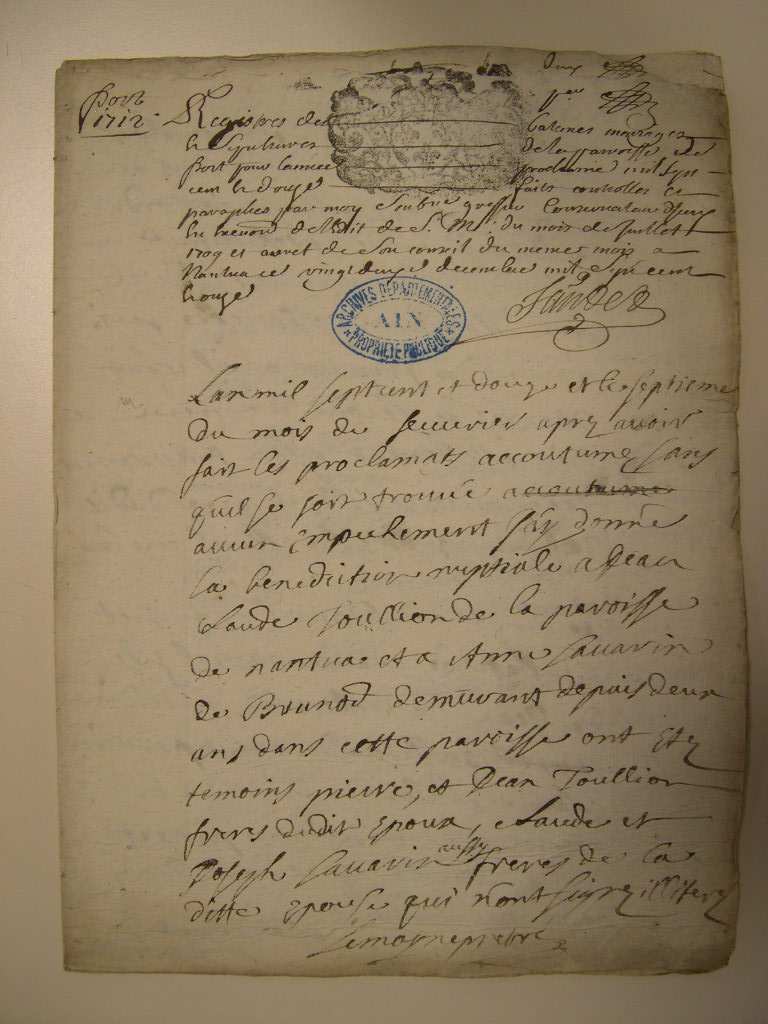 Port
1712
Deux
Registres des Batemes mariages
& Sepultures de la paroisse de
Port pour lannee prochaine mil sept
cent & douze faits controlles et
paraphés par moy Soubsigné greffier Conservateur
en execution de lEdit de S. M. du mois de Juillet
1709 et arret de Son conseil du meme mois a
Nantua ce vingt deuxe decembre mil sept cent
& onze
ARCHIVES DÉPARTEMENTALES
AIN
PROPRIÉTÉ PUBLIQUE
Lan mil sept cent et douze et le septieme
du mois de feuvrier aprez avoir
fait les proclamats accoutumez sans
quil se soit trouvé accoutumez
aucun empechement jay donné
la benediction nuptiale a Jean
Claude Toullion de la paroisse
de nantua et a Anne Savarin
de Brunod demeurant depuis deux
ans dans cette paroisse ont etez
temoins pierre, et Jean Toullion
freres dudit epoux, Claude et
Joseph Savarin aussy freres de la
ditte epouse qui n'ont signez illiterez
Lemoyne pretre